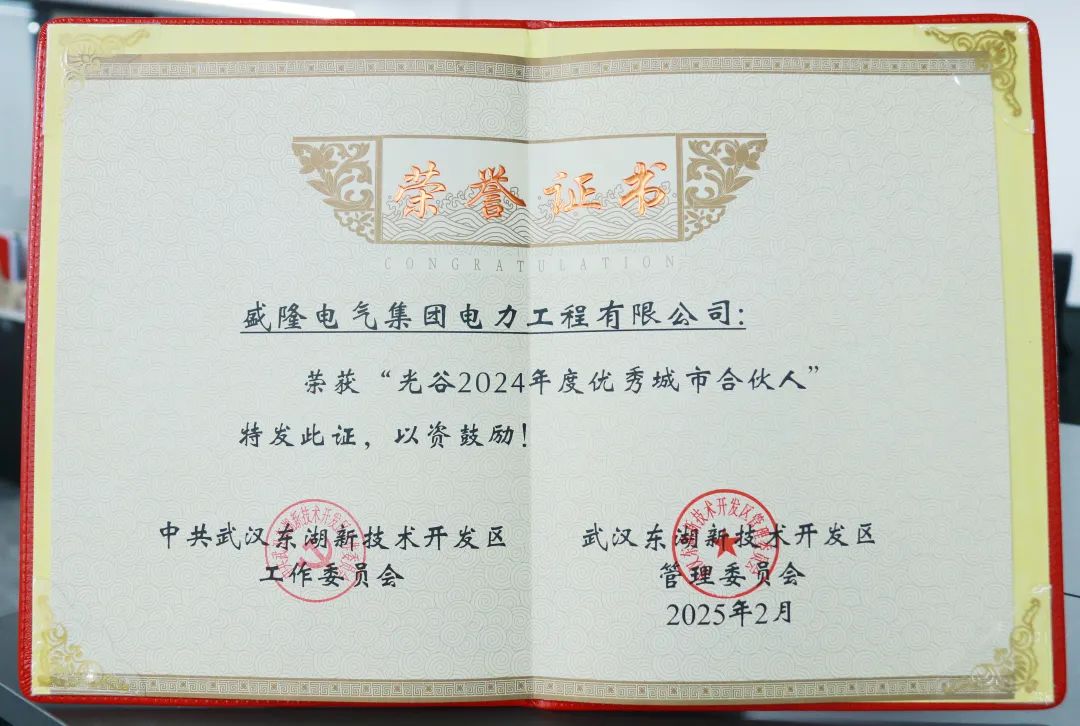 荣誉证书
CONGRATULATION
盛隆电气集团电力工程有限公司:
荣获“光谷2024年度优秀城市合伙人”
特发此证，以资鼓励!
中共武汉东湖新技术开发区
工作委员会
武汉东湖新技术开发区
管理委员会
2025年2月